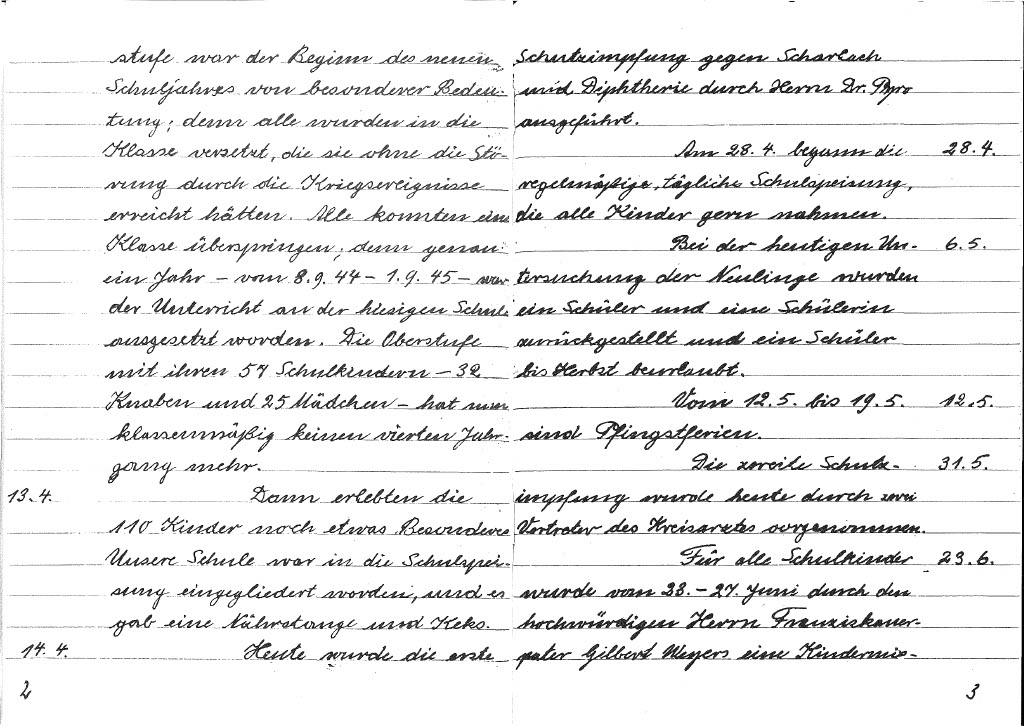 stufe war der Beginn des neuen
Schuljahres von besonderer Bedeu-
tung; denn alle wurden in die
Klasse versetzt, die sie ohne die Stö-
rung durch die Kriegsereignisse
erreicht hätten. Alle konnten eine
Klasse überspringen; denn genau
ein Jahr – vom 8.9.44 – 1.9.45 – war
der Unterricht an der hiesigen Schule
ausgesetzt worden. Die Oberstufe
mit ihren 57 Schulkindern – 32
Knaben und 25 Mädchen – hat nun
klassenmäßig keinen vierten Jahr-
gang mehr.
13.4. Dann erlebten die
110 Kinder noch etwas Besonderes
Unsere Schule war in die Schulspei-
sung eingegliedert worden, und es
gab eine Nährstange und Keks.
14.4. Heute wurde die erste
2
Schutzimpfung gegen Scharlach
und Diphtherie durch Herrn Dr. Pyro
ausgeführt.
Am 28.4. begann die 28.4.
regelmäßige, tägliche Schulspeisung,
die alle Kinder gern nahmen.
Bei der heutigen Un- 6.5.
tersuchung der Neulinge wurden
ein Schüler und eine Schülerin
zurückgestellt und ein Schüler
bis Herbst beurlaubt.
Vom 12.5. bis 19.5. 12.5.
sind Pfingstferien.
Die zweite Schutz- 31.5.
impfung wurde heute durch zwei
Vertreter des Kreisarztes vorgenommen.
Für alle Schulkinder 23.6.
wurde vom 23. – 27. Juni durch den
hochwürdigen Herrn Franziskaner-
pater Gilbert Weyers eine Kindermis-
3